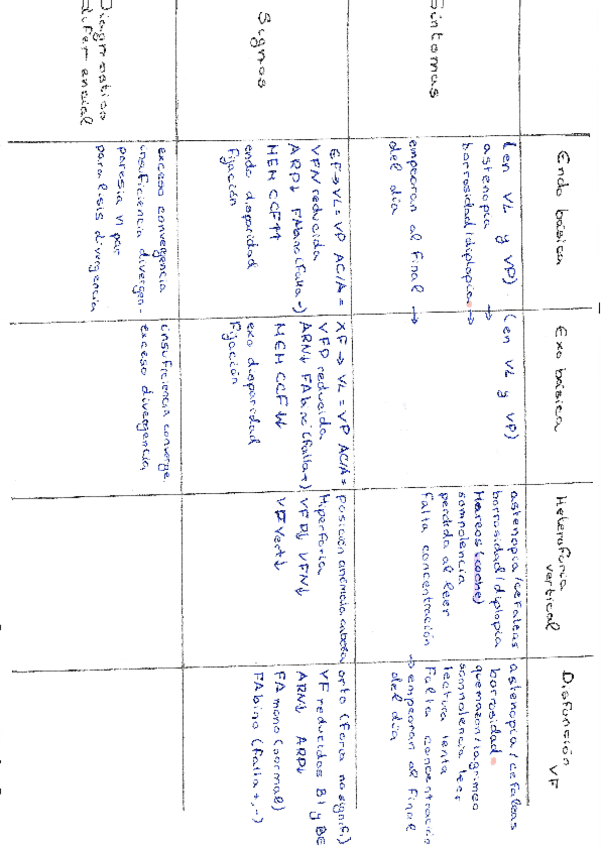 Endo básica
Exo básica
Heteroforia
vertical
Disfunción
VF
Síntomas
(en VL y VP)
astenopía
borrosidad/diplopia →
empeoran al final →
del día
(en VL y VP)
→
astenopía/cefaleas
borrosidad/diplopia
Mareos (coche)
somnolencia
perdida al leer
falta concentración
astenopía/cefaleas
borrosidad
quemazon/lagrimeo
somnolencia leer
lectura lenta
Falta concentración
→ empeoran al final
del día
Signos
EF→VL=VP AC/A=
VFN reducida
ARP↓ FAbino (Falla -)
MEM CCF↑↑
endo disparidad
fijación
XF → VL=VP AC/A=
VFP reducida
ARN↓ FAbino (Falla +)
MEM CCF↓↓
exo disparidad
Fijación
posición anómala cabeza
Hiperforia
VFP↓ VFN↓
VFVert↓
orto (foria no signifi.)
VF reducidas BI y BE
ARN↓ ARP↓
FA mono (normal)
FAbino (Falla +,-)
Diagnostico
diferencial
exceso convergencia
insuficiencia divergen-
paresia VI par
paralisis divergencia
insuficiencia converge.
exceso divergencia